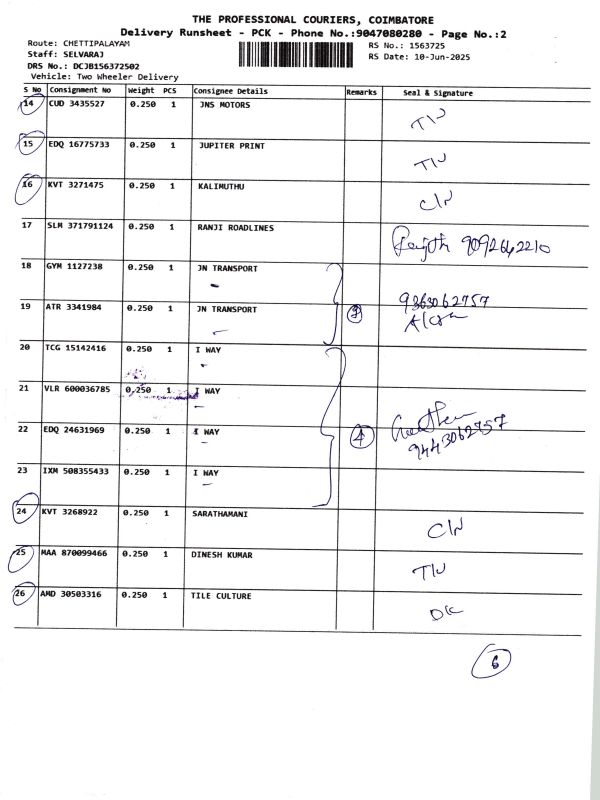 THE PROFESSIONAL COURIERS, COIMBATORE
Delivery Runsheet - PCK - Phone No.:9047080280 - Page No.:2
Route: CHETTIPALAYAM
RS No.: 1563725
Staff: SELVARAJ
RS Date: 10-Jun-2025
DRS No.: DCJB156372502
Vehicle: Two Wheeler Delivery
S No Consignment No Weight PCS Consignee Details Remarks Seal & Signature
14 CUD 3435527 0.250 1 JNS MOTORS
15 EDQ 16775733 0.250 1 JUPITER PRINT
16 KVT 3271475 0.250 1 KALIMUTHU C/N
17 SLM 371791124 0.250 1 RANJI ROADLINES 9092642210
18 GYM 1127238 0.250 1 JN TRANSPORT
19 ATR 3341984 0.250 1 JN TRANSPORT 9363062757
20 TCG 15142416 0.250 1 I WAY
21 VLR 600036785 0.250 1 I WAY
22 EDQ 24631969 0.250 1 I WAY 4 9443062757
23 IXM 508355433 0.250 1 I WAY
24 KVT 3268922 0.250 1 SARATHAMANI C/N
25 MAA 870099466 0.250 1 DINESH KUMAR
26 AMD 30503316 0.250 1 TILE CULTURE DK
6